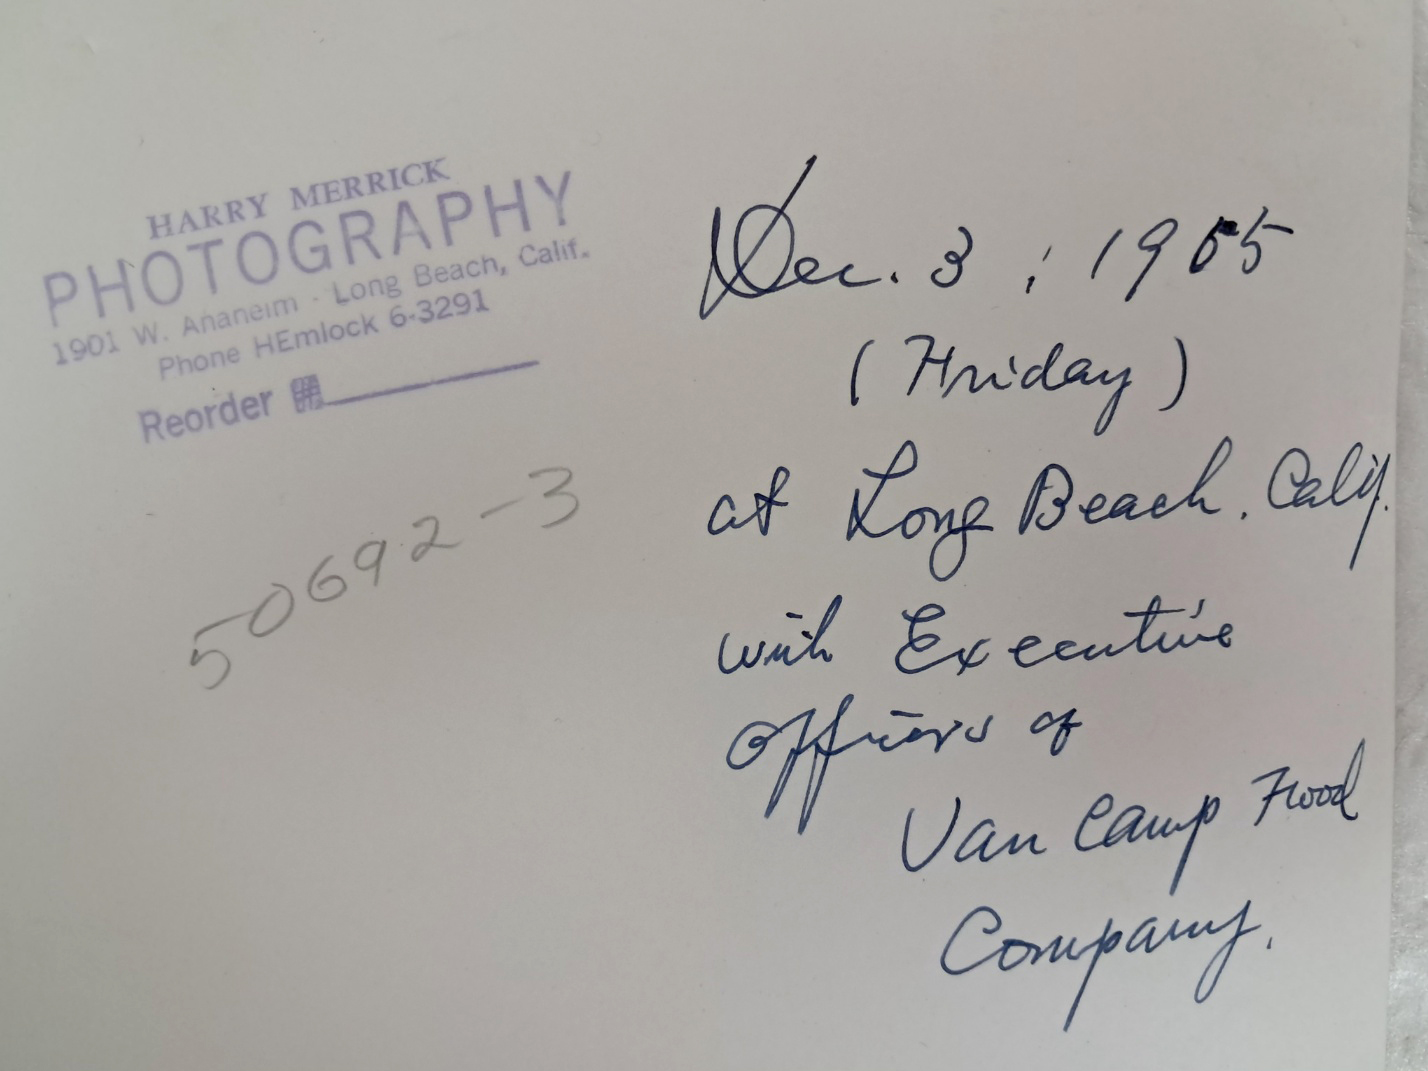 HARRY MERRICK
PHOTOGRAPHY
1901 W. Anaheim · Long Beach, Calif.
Phone HEmlock 6-3291
Reorder #
50692-3
Dec. 3, 1965
(Friday)
at Long Beach, Calif.
with Executive
Officers of
Van Camp Food
Company.